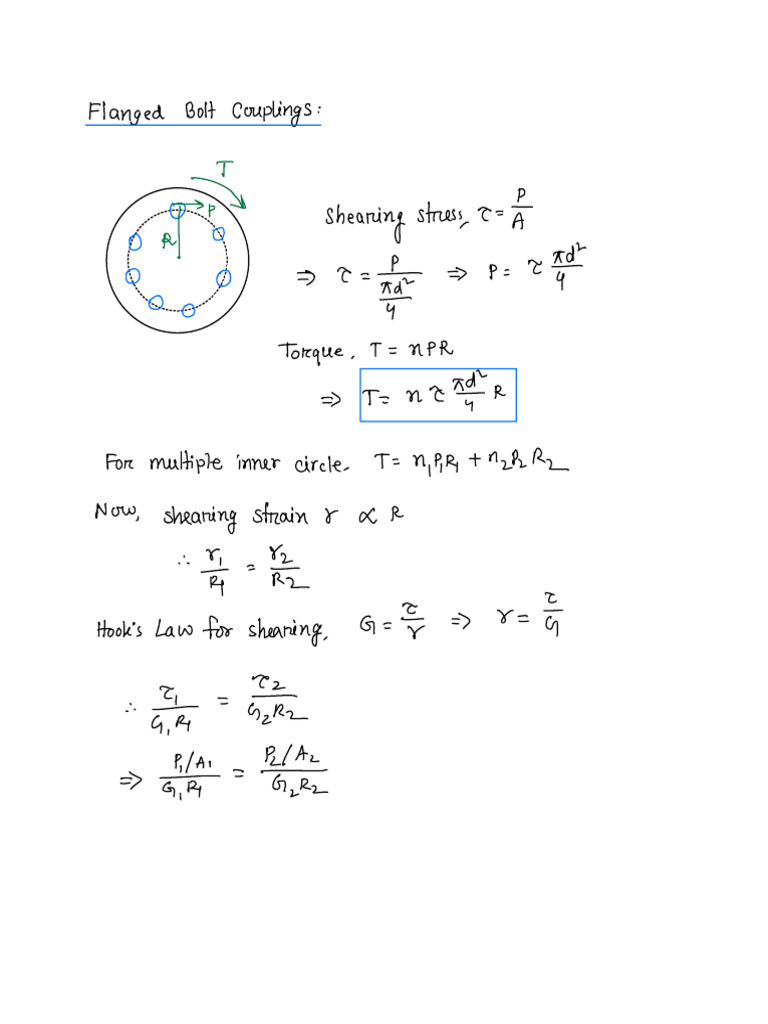 Flanged Bolt Couplings:
T
P
R
Shearing stress, τ = P/A
⇒ τ = P/(πd²/4) ⇒ P = τ πd²/4
Torque, T = nPR
⇒ T = n τ πd²/4 R
For multiple inner circle, T = n₁P₁R₁ + n₂P₂R₂
Now, shearing strain γ ∝ R
∴ γ₁/R₁ = γ₂/R₂
Hook's Law for shearing, G = τ/γ ⇒ γ = τ/G
∴ τ₁/(G₁R₁) = τ₂/(G₂R₂)
⇒ (P₁/A₁)/(G₁R₁) = (P₂/A₂)/(G₂R₂)